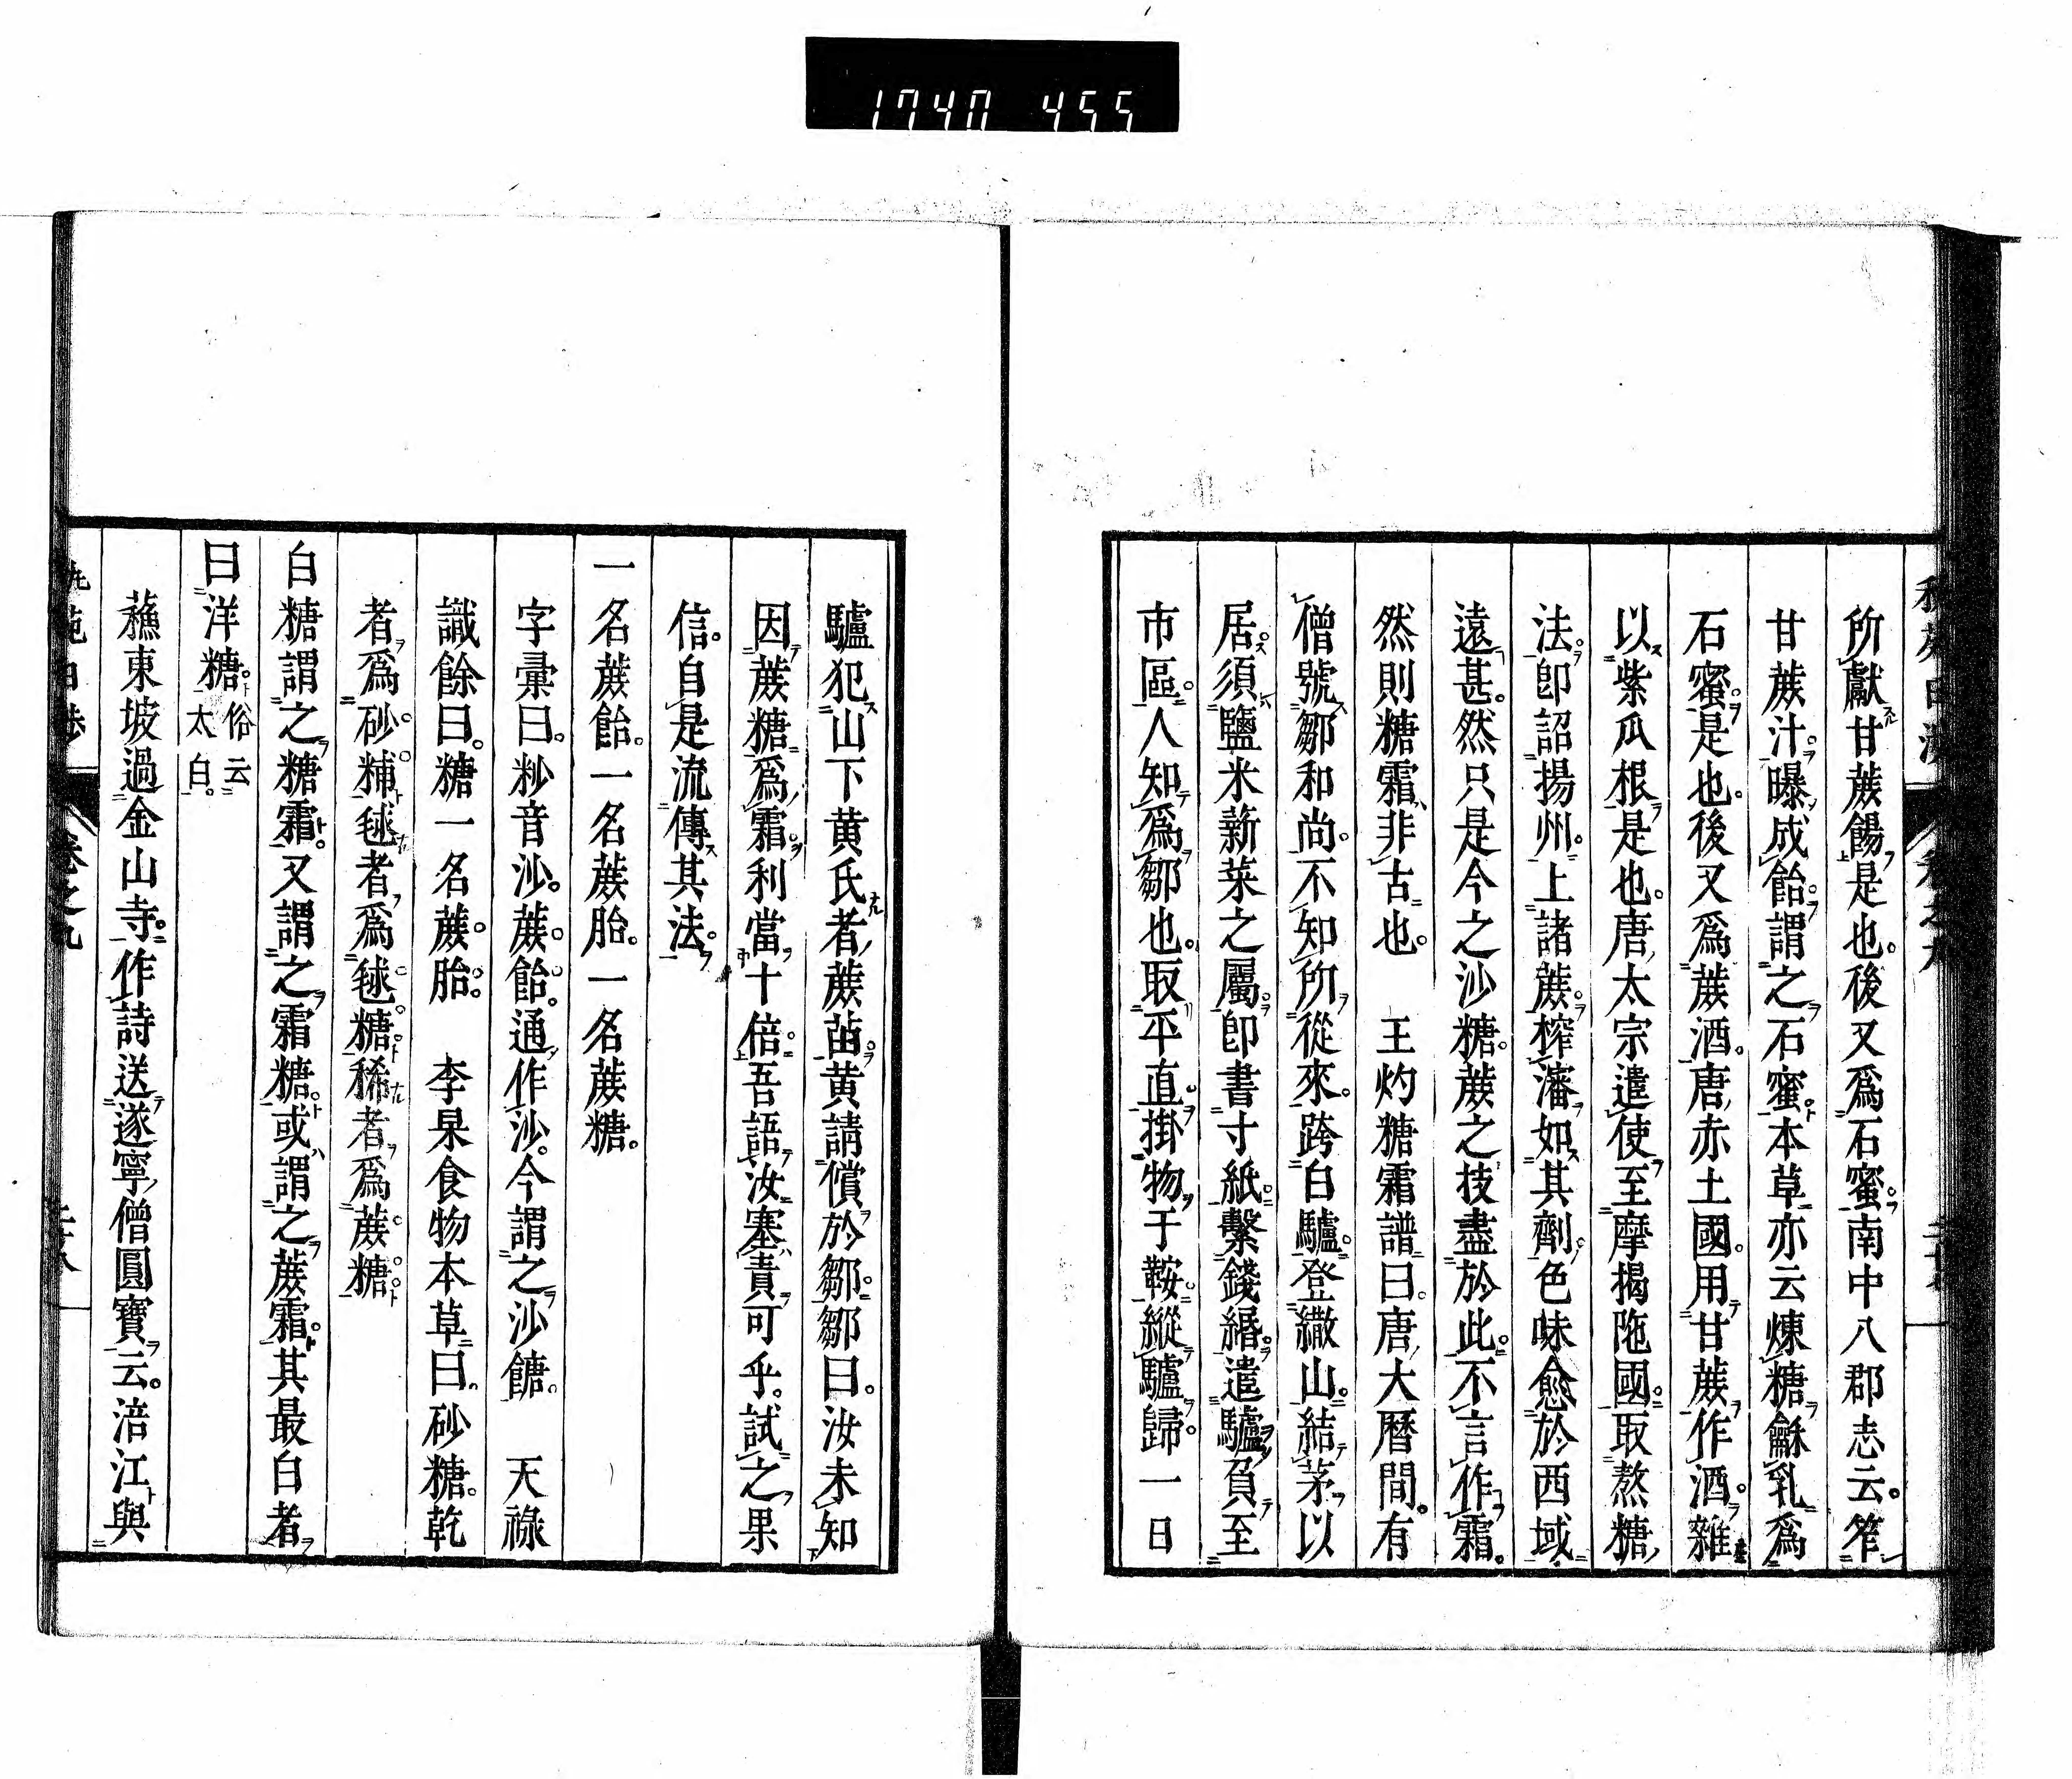 1740 455
所獻甘蔗餳是也。後又爲石蜜。南中八郡志云。笮
甘蔗汁。曝成飴。謂之石蜜。本草亦云煉糖龢乳爲
石蜜。是也。後又爲蔗酒。唐赤土國。用甘蔗作酒。雜
以紫瓜根是也。唐太宗遣使至摩揭陁國。取熬糖
法。卽詔揚州。上諸蔗。榨瀋如其劑。色味愈於西域
遠甚。然只是今之沙糖。蔗之技盡於此。不言作霜。
然則糖霜非古也。　王灼糖霜譜曰。唐大曆間。有
僧號鄒和尚。不知所從來。跨白驢。登繖山。結茅以
居。須鹽米薪菜之屬。卽書寸紙。繫錢緡。遣驢負至
市區。人知爲鄒也。取平直。掛物于鞍。縱驢歸。一日
驢犯山下黄氏者蔗苗。黄請償於鄒。鄒曰。汝未知
因蔗糖爲霜。利當十倍。吾語汝塞責可乎。試之果
信。自是流傳其法。
一名蔗飴。一名蔗胎。一名蔗糖。
字彙曰。粆音沙。蔗飴。通作沙。今謂之沙餹。　天祿
識餘曰。糖一名蔗胎。　李杲食物本草曰。砂糖。乾
者爲砂糖。毬者爲毬糖。稀者爲蔗糖
白糖謂之糖霜。又謂之霜糖。或謂之蔗霜。其最白者
曰洋糖。俗云太白。
蘓東坡過金山寺。作詩送遂寧僧圓寶云。涪江與
卷之九